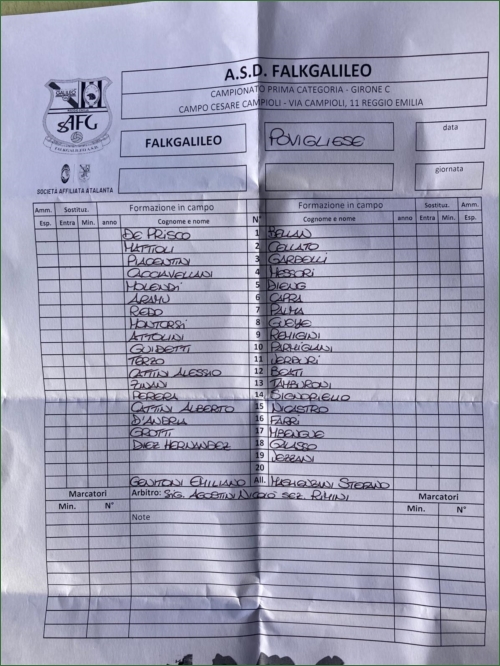 A.S.D. FALKGALILEO
CAMPIONATO PRIMA CATEGORIA - GIRONE C
CAMPO CESARE CAMPIOLI - VIA CAMPIOLI, 11 REGGIO EMILIA
GALILEO
SAFC
FALKGALILEO POVIGLIESE data
giornata
SOCIETÀ AFFILIATA ATALANTA
Amm. Sostituz. Formazione in campo Formazione in campo Sostituz. Amm.
Esp. Entra Min. anno Cognome e nome N° Cognome e nome anno Entra Min. Esp.
DE PRISCO 1 BELLAN
MATTIOLI 2 CELLATO
PIACENTINI 3 GARDELLI
CACCIAVELLANI 4 MESSORI
MOLENDI 5 DIENG
ARAMU 6 CAPRA
REDO 7 PALMA
MONTORSI 8 GUEYE
ATTOLINI 9 REMIGINI
GUIDETTI 10 PARMIGIANI
TERZO 11
CATTINI ALESSIO 12 BEATI
ZINANI 13 TAMBURONI
PERERA 14 SIGNORIELLO
CATTINI ALBERTO 15 NICASTRO
D'ANDREA 16 FARRI
GROTTI 17 MBENGUE
DIEZ HERNANDEZ 18 GALASSO
19 JEZZANI
20
GENITONI EMILIANO All. STEFANO
Marcatori Arbitro: SIG. AGOSTINI NICOLÒ SEZ. RIMINI Marcatori
Min. N° Note Min. N°